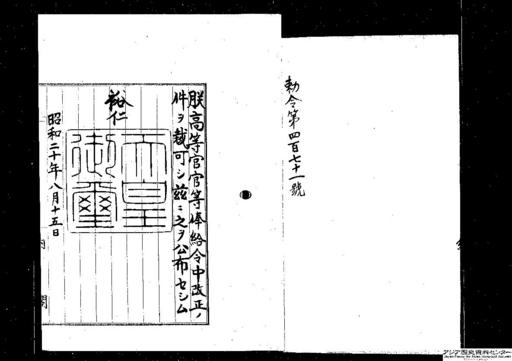 勅令第四百七十一號
朕高等官官等俸給令中改正ノ
件ヲ裁可シ茲ニ之ヲ公布セシム
裕仁
天皇御璽
昭和二十年八月十五日
内閣
アジア歴史資料センター